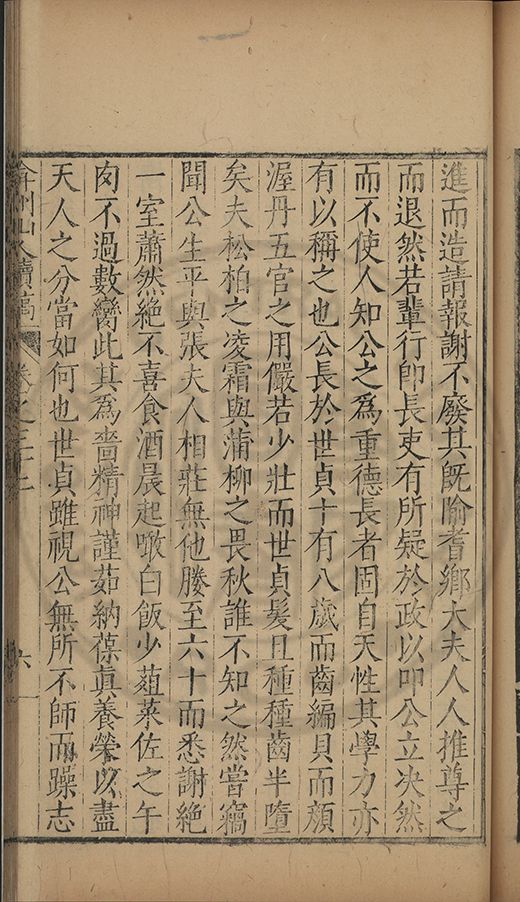 進而造請報謝不廢其既喻耆鄉大夫人人推尊之
而退然若輩行即長吏有所疑於政以叩公立决然
而不使人知公之爲重德長者固自天性其學力亦
有以稱之也公長於世貞十有八歲而齒編貝而顏
渥丹五官之用儼若少壯而世貞髮且種種齒半墮
矣夫松柏之凌霜與蒲柳之畏秋誰不知之然嘗竊
聞公生平與張夫人相莊無他媵至六十而悉謝絕
一室蕭然絕不喜食酒晨起噉白飯少葅菜佐之午
肉不過數臠此其爲嗇精神謹茹納葆眞養榮以盡
天人之分當如何也世貞雖視公無所不師而躁志
弇州山人續稿 卷之三十二 六